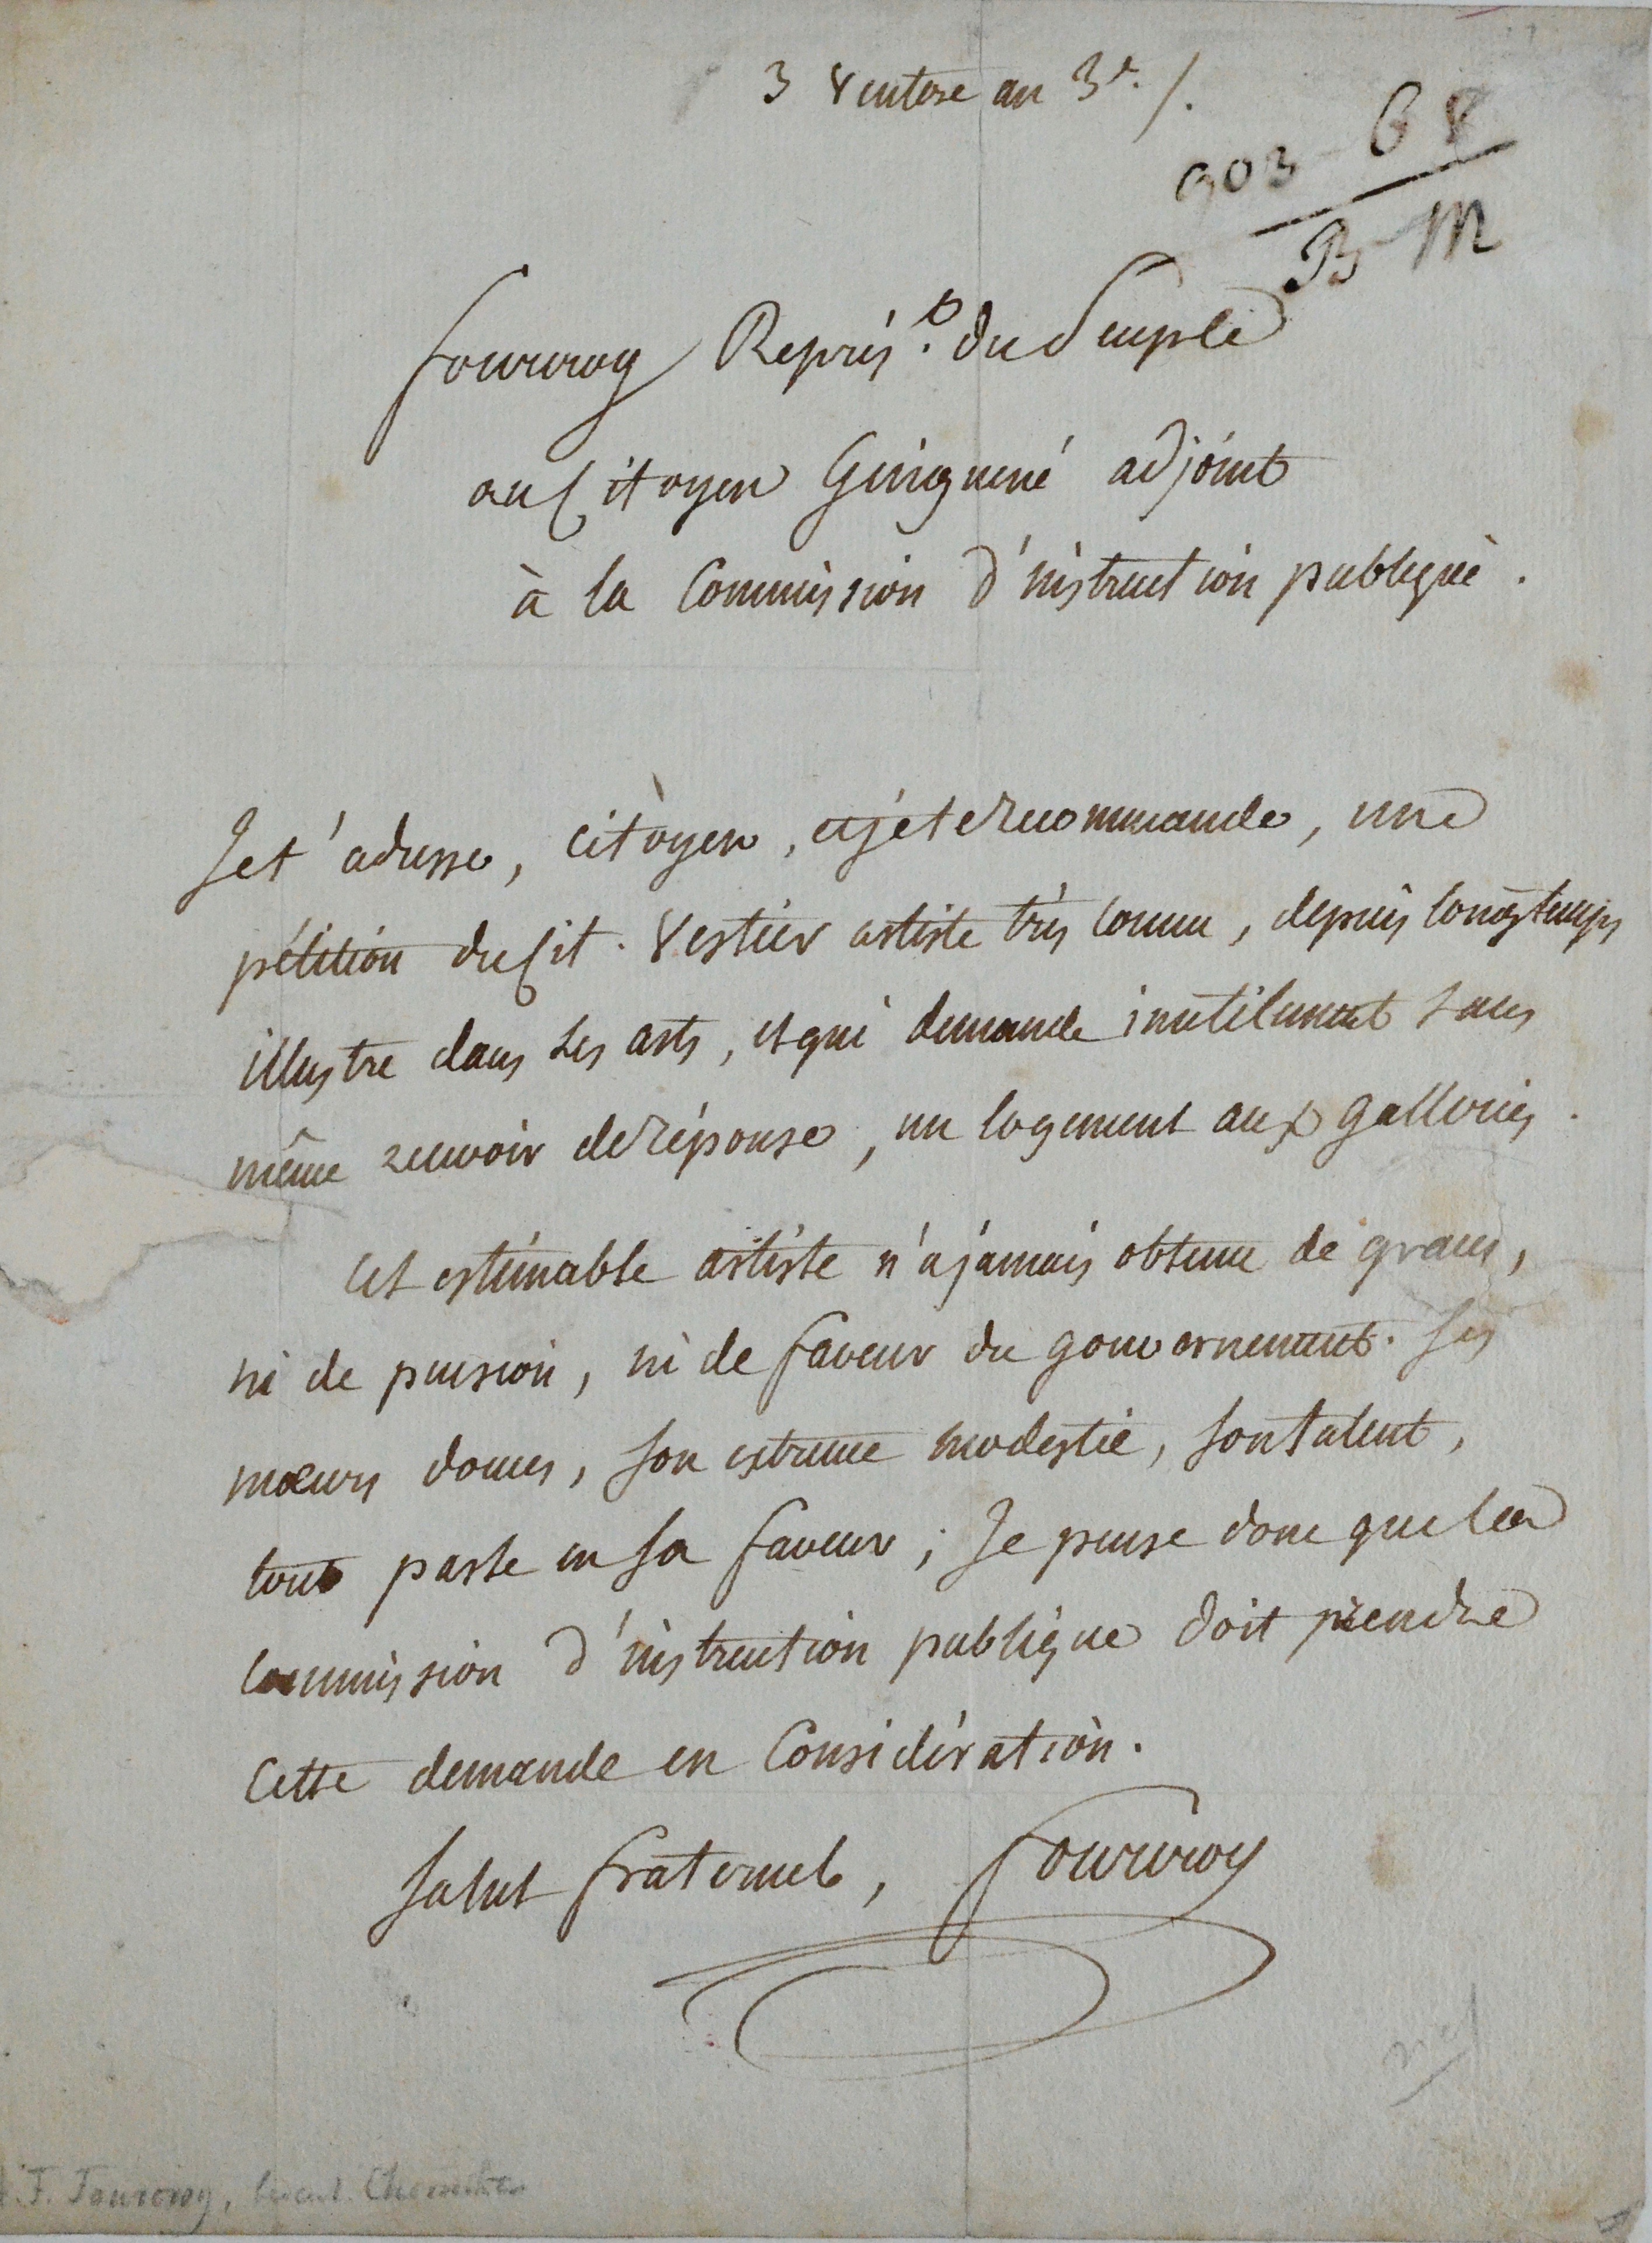 3 Ventose an 3e. /.
903 - G8
B - M
fourcroy Représt. du Peuple
au Citoyen Guinguené adjoint
à la Commission d'instruction publique.
Je t'adresse, citoyen, et je te recommande, une
pétition du Cit. Vestier artiste très connu, depuis longtemps
illustre dans les arts, et qui demande inutilement sans
même recevoir de réponse, un logement aux galleries.
Cet estimable artiste n'a jamais obtenu de graces,
ni de pension, ni de faveur du gouvernement. Ses
mœurs douces, son extreme modestie, son talent,
tout parle en sa faveur; Je pense donc que la
Commission d'instruction publique doit prendre
Cette demande en Considération.
Salut fraternel, fourcroy
F. Fourcroy, Chemiker